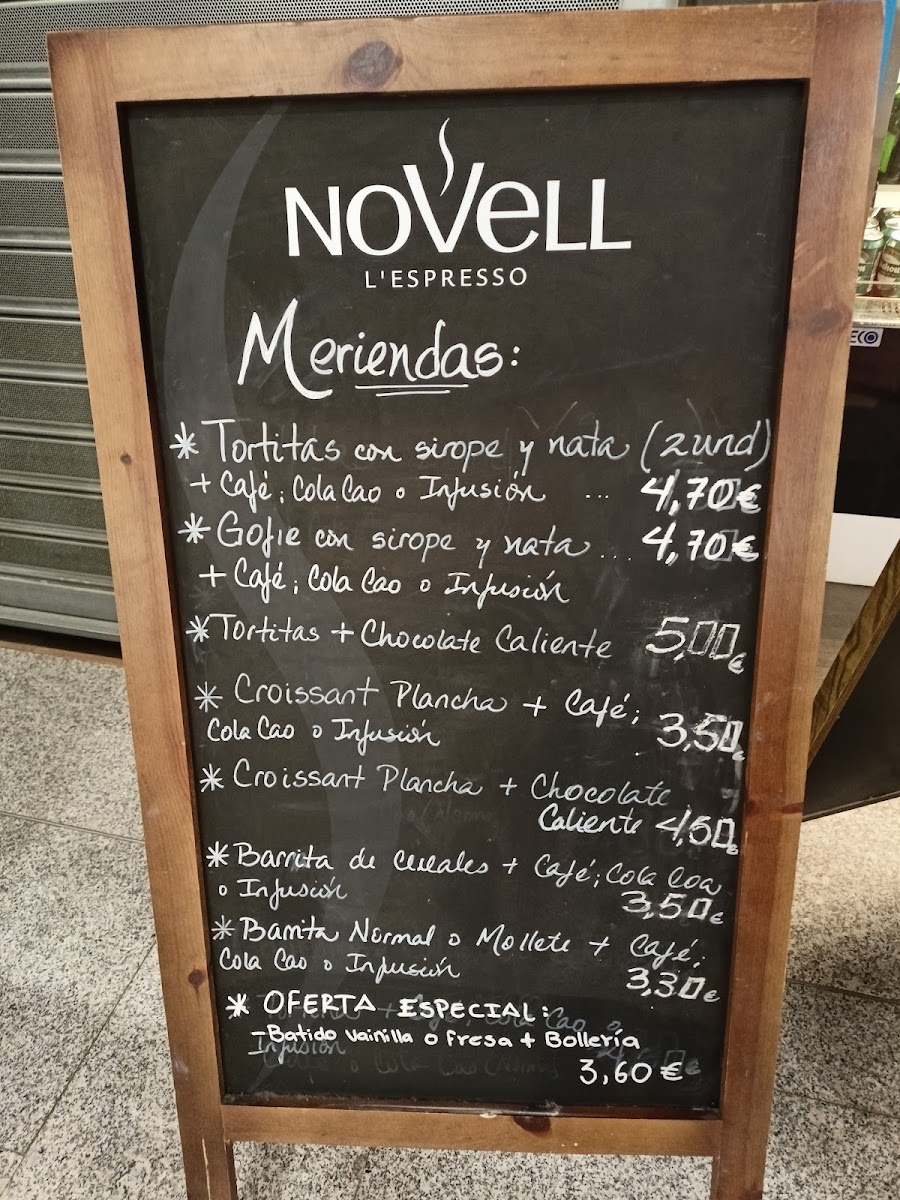 NOVELL
L'ESPRESSO
Meriendas:
* Tortitas con sirope y nata (2und)
+ Café; Cola Cao o Infusión ... 4,70€
* Gofre con sirope y nata... 4,70€
+ Café; Cola Cao o Infusión
* Tortitas + Chocolate Caliente 5,00€
* Croissant Plancha + Café;
Cola Cao o Infusión 3,50€
* Croissant Plancha + Chocolate
Caliente 4,50€
* Barrita de cereales + Café; Cola Coa
o Infusión 3,50€
* Barrita Normal o Mollete + Café;
Cola Cao o Infusión 3,30€
* OFERTA ESPECIAL:
-Batido Vainilla o Fresa + Bollería
3,60€
ECO